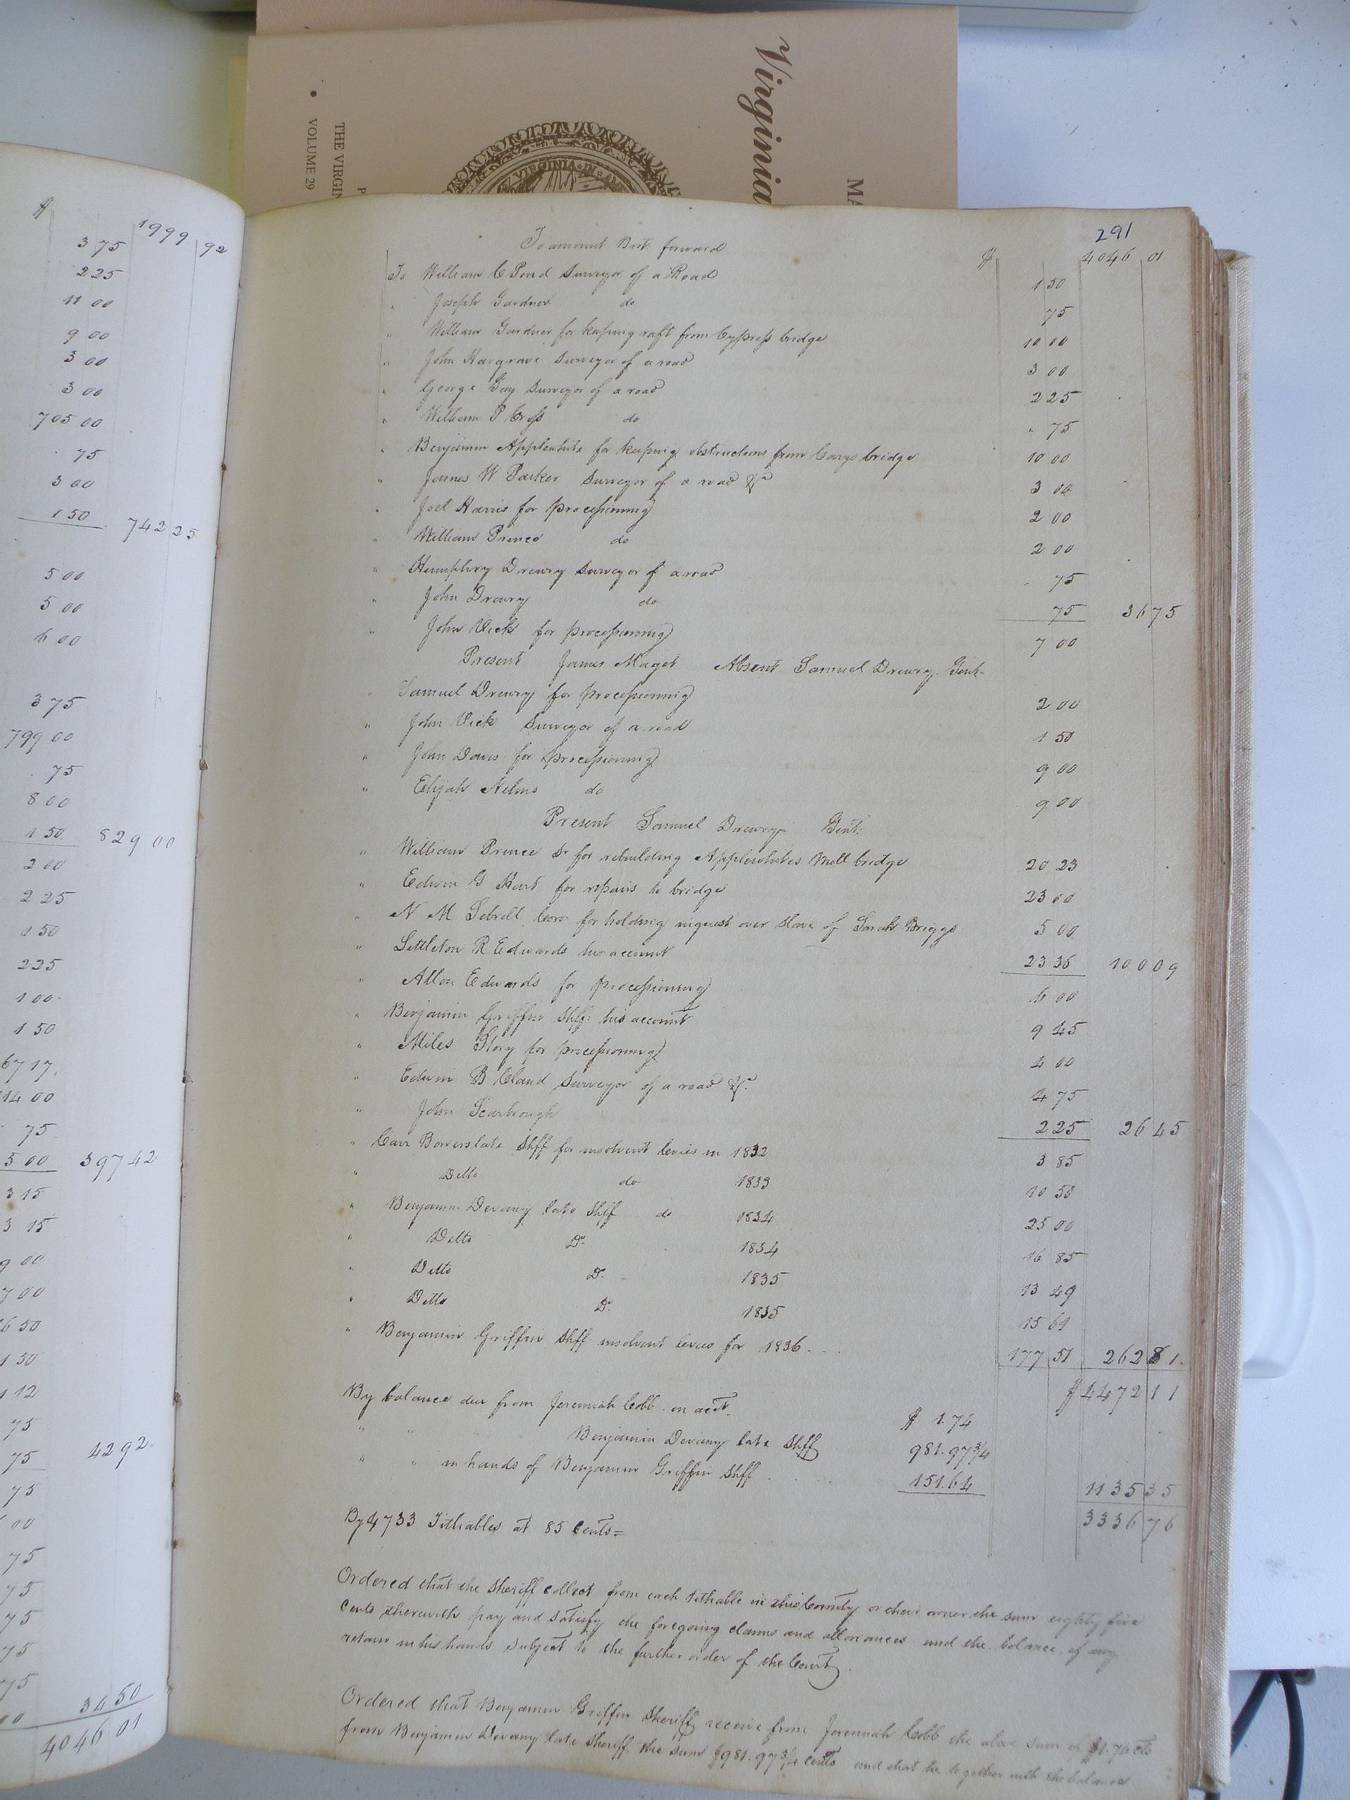 Virginia
MA
THE VIRGIN
VOLUME 29
VIRGINIA
$ 1999 92
3 75
2 25
11 00
9 00
3 00
3 00
705 00
75
3 00
1 50 742 25
5 00
5 00
6 00
3 75
799 00
75
8 00
1 50 829 00
2 00
2 25
1 50
2 25
1 00
1 50
67 17
14 00
75
5 00 397 42
3 15
3 15
9 00
7 00
6 50
1 50
1 12
75
75 42 92
75
00
75
75
75
75
75
00 34 50
4046 01
291
To amount Brot forward $ 4046 01
To William C Pond Surveyor of a Road 1 50
" Joseph Gardner do 75
" William Gardner for keeping raft from Cypress bridge 10 00
" John Hargrave Surveyor of a road 3 00
" George Gay Surveyor of a road 2 25
" William P Cross do 75
" Benjamin Applewhite for keeping obstructions from Carys bridge 10 00
" James W Parker Surveyor of a road &c 3 00
" Joel Harris for processioning 2 00
" William Prince do 2 00
" Humphry Drewry Surveyor of a road 75
" John Drewry do 75 36 75
" John Vick for processioning 7 00
Present James Maget Absent Samuel Drewry Gent
" Samuel Drewry for processioning 2 00
" John Vick Surveyor of a road 1 50
" John Davis for processioning 9 00
" Elijah Helms do 9 00
Present Samuel Drewry Gent:
" William Prince Sr for rebuilding Applewhites Mill bridge 20 23
" Edwin G Hart for repairs to bridge 23 00
" N M Sebrell Coro for holding inquest over slave of Sarah Briggs 5 00
" Littleton R Edwards his account 23 36 100 09
" Allen Edwards for processioning 6 00
" Benjamin Griffin Shff: his account 9 45
" Miles Story for processioning 4 00
" Edwin B Claud Surveyor of a road &c. 4 75
" John Scarbough 2 25 26 45
" Carr Bowers late Shff for insolvent levies in 1832 3 85
" Ditto do 1833 10 50
" Benjamin Devany late Shff do 1834 25 00
" Ditto Do. 1834 16 85
" Ditto Do. 1835 13 49
" Ditto Do. 1835 15 61
" Benjamin Griffin Shff insolvent levies for 1836 177 51 262 81
$ 4472 11
By balance due from Jeremiah Cobb on acct. $ 1.74
" " Benjamin Devany late Shff 981.97 3/4
" " in hands of Benjamin Griffin Shff 151.64 1135 35
By 4733 Tithables at 85 Cents = 3336 76
Ordered that the Sheriff collect from each tithable in this County or their owner the sum eighty five
Cents therewith pay and satisfy the foregoing claims and allowances and the balance if any
retain in his hands Subject to the further order of the Court.
Ordered that Benjamin Griffin Sheriff receive from Jeremiah Cobb the above sum of $1.74 cts
from Benjamin Devany late Sheriff the sum $981.97 3/4 Cents and that he together with the balance